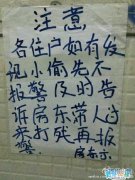 注意
各住户如有发
现小偷先不
报警及时告
诉房东带人
来打死再报
警
房东示